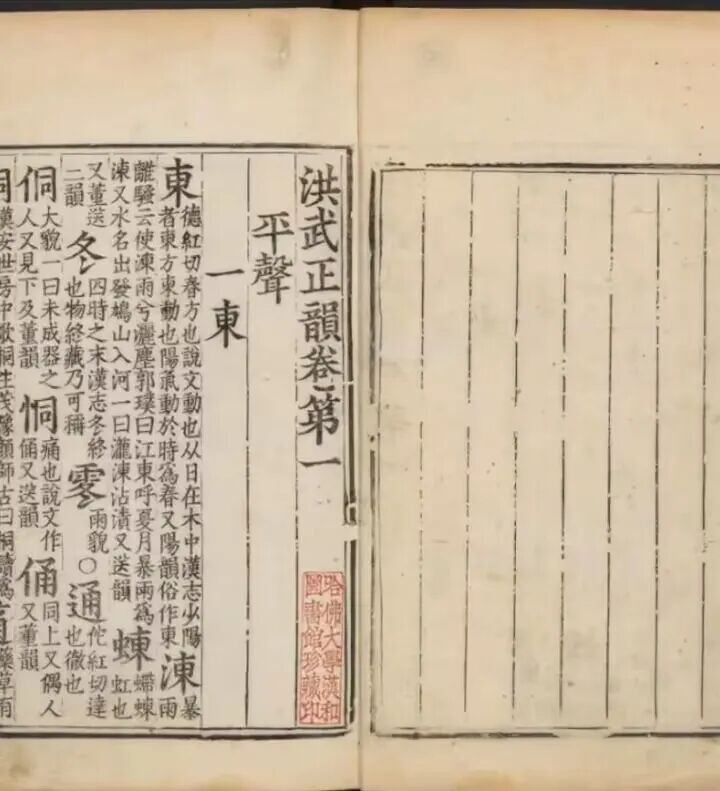 洪武正韻卷第一
哈佛大學漢和
圖書館珍藏印
平聲
一東
東德紅切春方也說文動也从日在木中漢志少陽者東方東動也陽氣動於時爲春又陽韻俗作東涷暴雨
離騷云使涷雨兮灑塵郭璞曰江東呼夏月暴雨爲涷又水名出發鳩山入河一曰瀧涷沾漬又送韻蝀螮蝀虹也
又董送二韻冬四時之末漢志冬終也物終藏乃可稱零雨貌○通佗紅切達也徹也
侗大貌一曰未成器之人又見下及董韻恫痛也說文作俑又送韻俑同上又偶人又董韻
桐漢安世房中歌桐生茂豫顏師古曰桐讀爲 藥草有